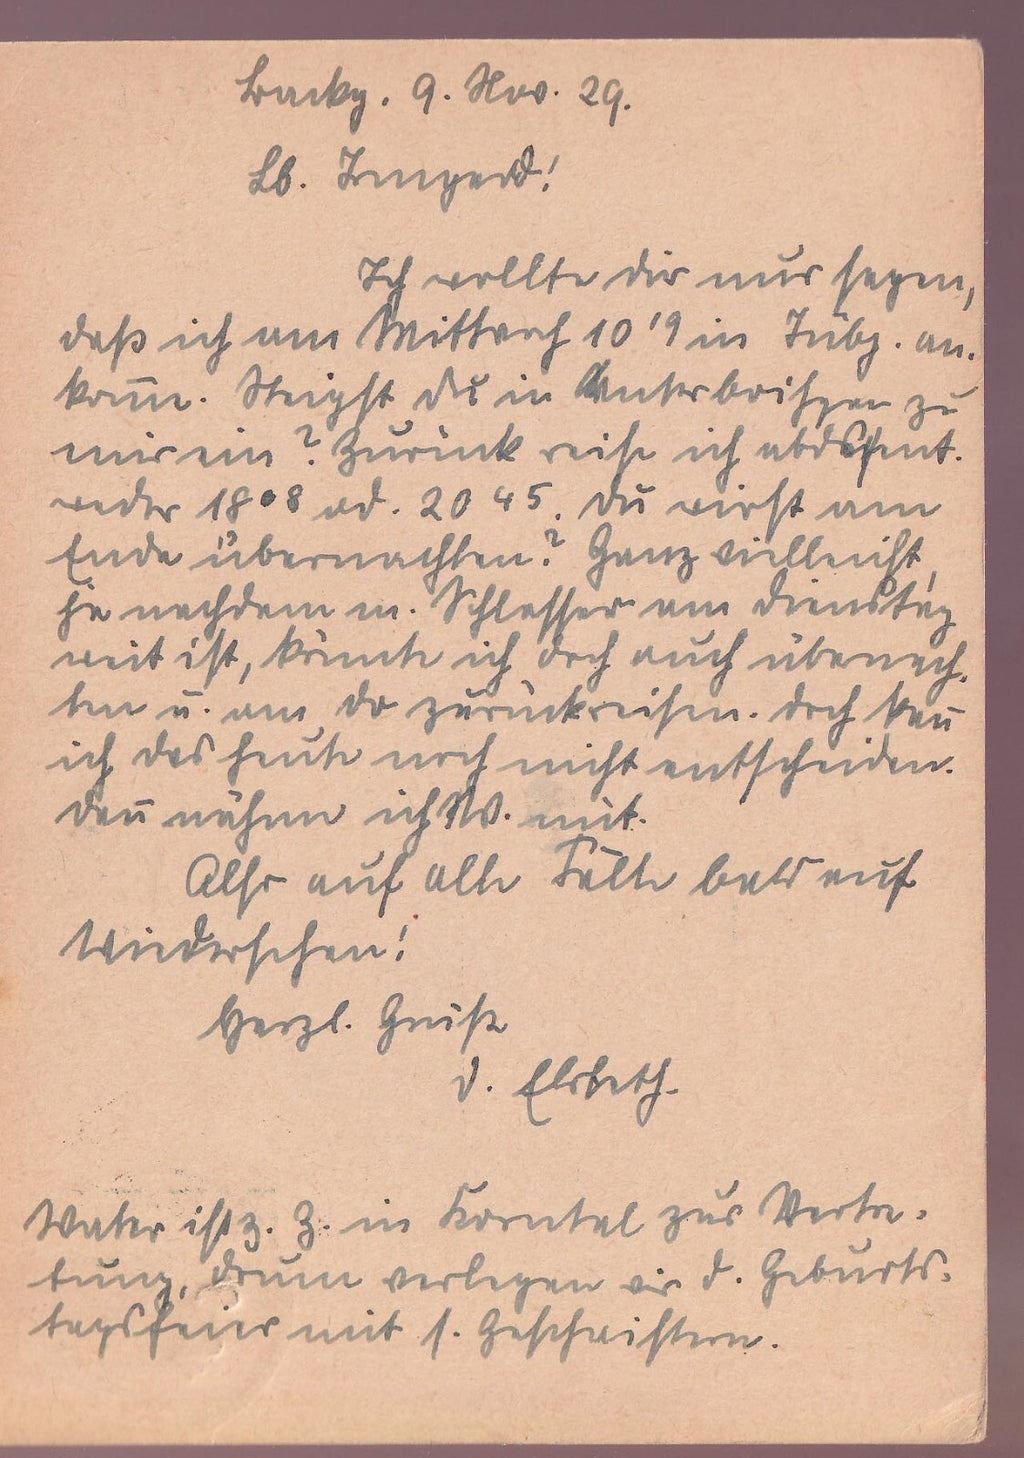 Backg. 9. Nov. 29.
Lb. Irmgard!
Ich wollte dir nur sagen,
daß ich am Mittwoch 10 19 in Tübg. an-
kom̅e. Steigst du in Unterboihgen zu
mir ein? Zurück reise ich abds ent-
weder 18 08 od. 20 45. Du wirst am
Ende übernachten? Ganz vielleicht,
je nachdem m. Schlosser am Dienstag
weit ist, könnte ich doch auch übernach-
ten u. am Do zurückreisen. Doch kan̅
ich das heute noch nicht entscheiden.
Dan̅ nähme ich W. mit.
Also auf alle Fälle bald auf
Wiedersehen!
Herzl. Grüße
d. Elsbeth.
Vater ist z. Z. in Korntal zur Vertre-
tung, drum verlegen wir d. Geburts-
tagsfeier mit s. Geschwistern.